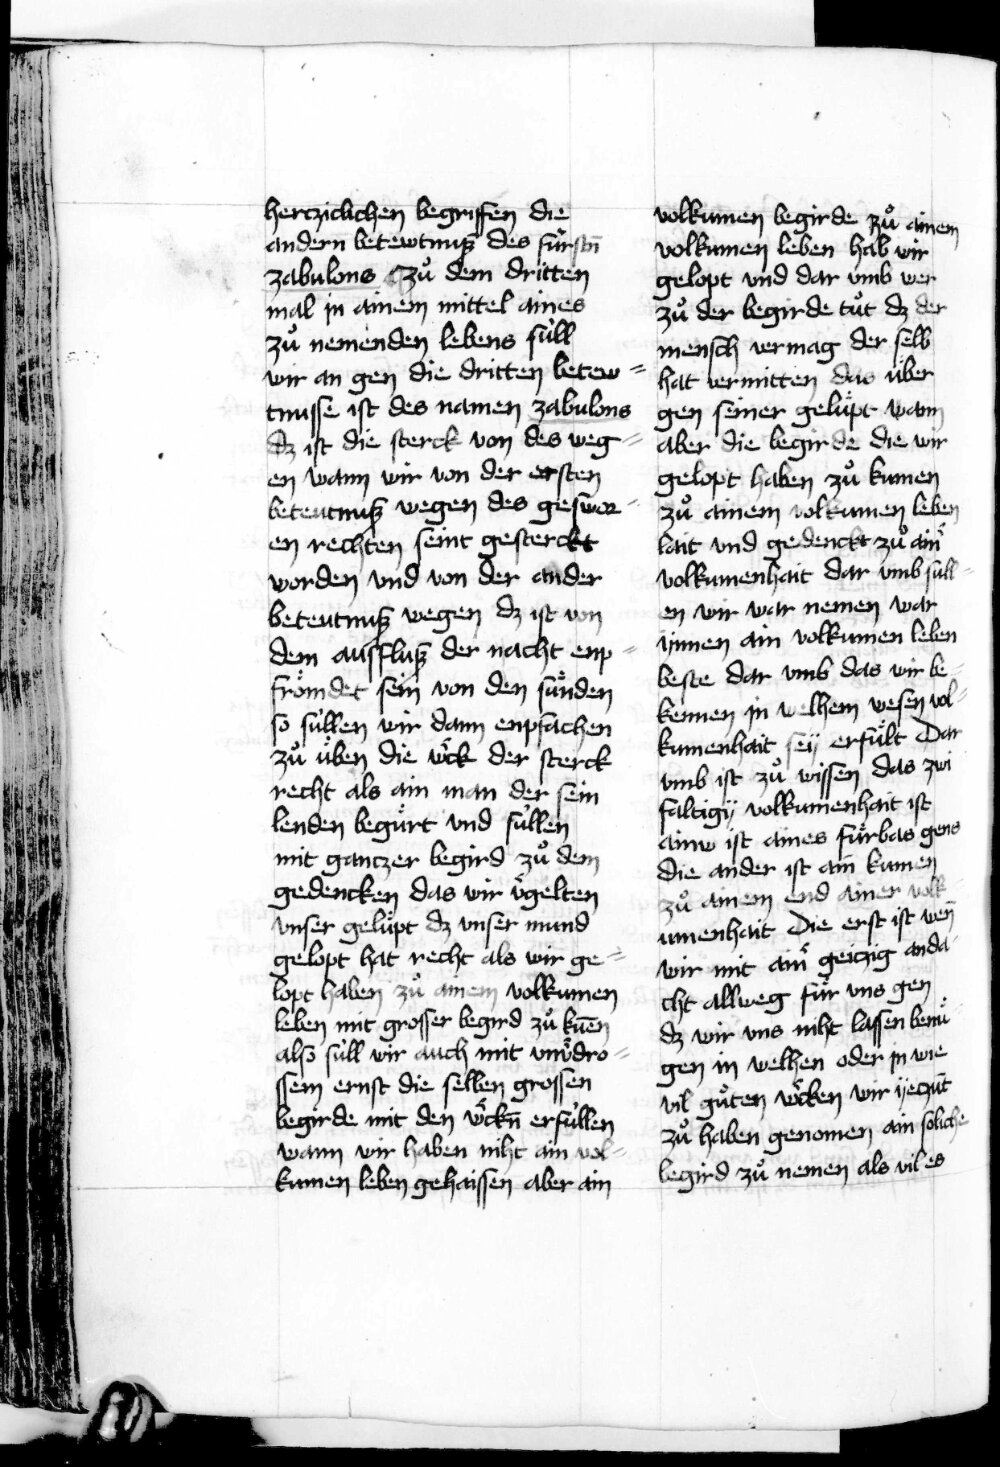 hercziclichen begriffen die
andern betewtnuß des fürstn̄
zabulons Zuͦ dem dritten
mal in ainem mittel aines
zuͦ nemenden lebens süll
wir an gen die dritten betew=
tnusse ist des namen zabulons
dz ist die sterck von des weg=
en wann wir von der ersten
beteutnuß wegen des geswor=
en rechten seint gesterckt
worden vnd von der ander
beteutnuß wegen dz ist von
dem ausfluß der nacht enp=
frömdet sein von den sünden
so süllen wir dann enpfachen
zuͦ üben die w̄ck der sterck
recht als ain man der sein
lenden begürt vnd süllen
mit ganczer begird zuͦ dem
gedencken das wir v̄gelten
vnser gelüpt dz vnser mund
gelopt hat recht als wir ge=
lopt haben zuͦ ainem volkumen
leben mit grosser begird zuͦ kūen
also süll wir auch mit vnv̄dro=
ssem ernst die selben grossen
begirde mit den w̄ckn̄ erfüllen
wann wir haben niht ain vol=
kumen leben gehaissen aber ain
volkumen begirde zuͦ ainem
volkumen leben hab wir
gelopt vnd dar vmb wer
zuͦ der begirde tuͦt dz der
mensch vermag der selb
hat vermitten das über
gen seiner gelüpt wann
aber die begirde die wir
gelopt haben zuͦ kumen
zuͦ ainem volkumen leben
lait vnd gedenckt zuͦ ain̄
volkumenhait dar vmb süll=
en wir war nemen war
ynnen ain volkumen leben
beste dar vmb das wir be=
kennen in welhem wesen vol=
kumenhait sey erfült Dar
vmb ist zuͦ wissen das zwi
faltigy volkumenhait ist
ainw ist aines fürbas gens
die ander ist ain kumen
zuͦ ainem end ainer volk
umenhait Die erst ist wen̄
wir mit ain̄ geiczig anda=
cht allweg für vns gen
dz wir vns niht lassen benü=
gen in welhen oder in wie
vil guͦten w̄cken wir yeczūt
zuͦ haben genomen ain soliche
begird zuͦ nemen als vil es